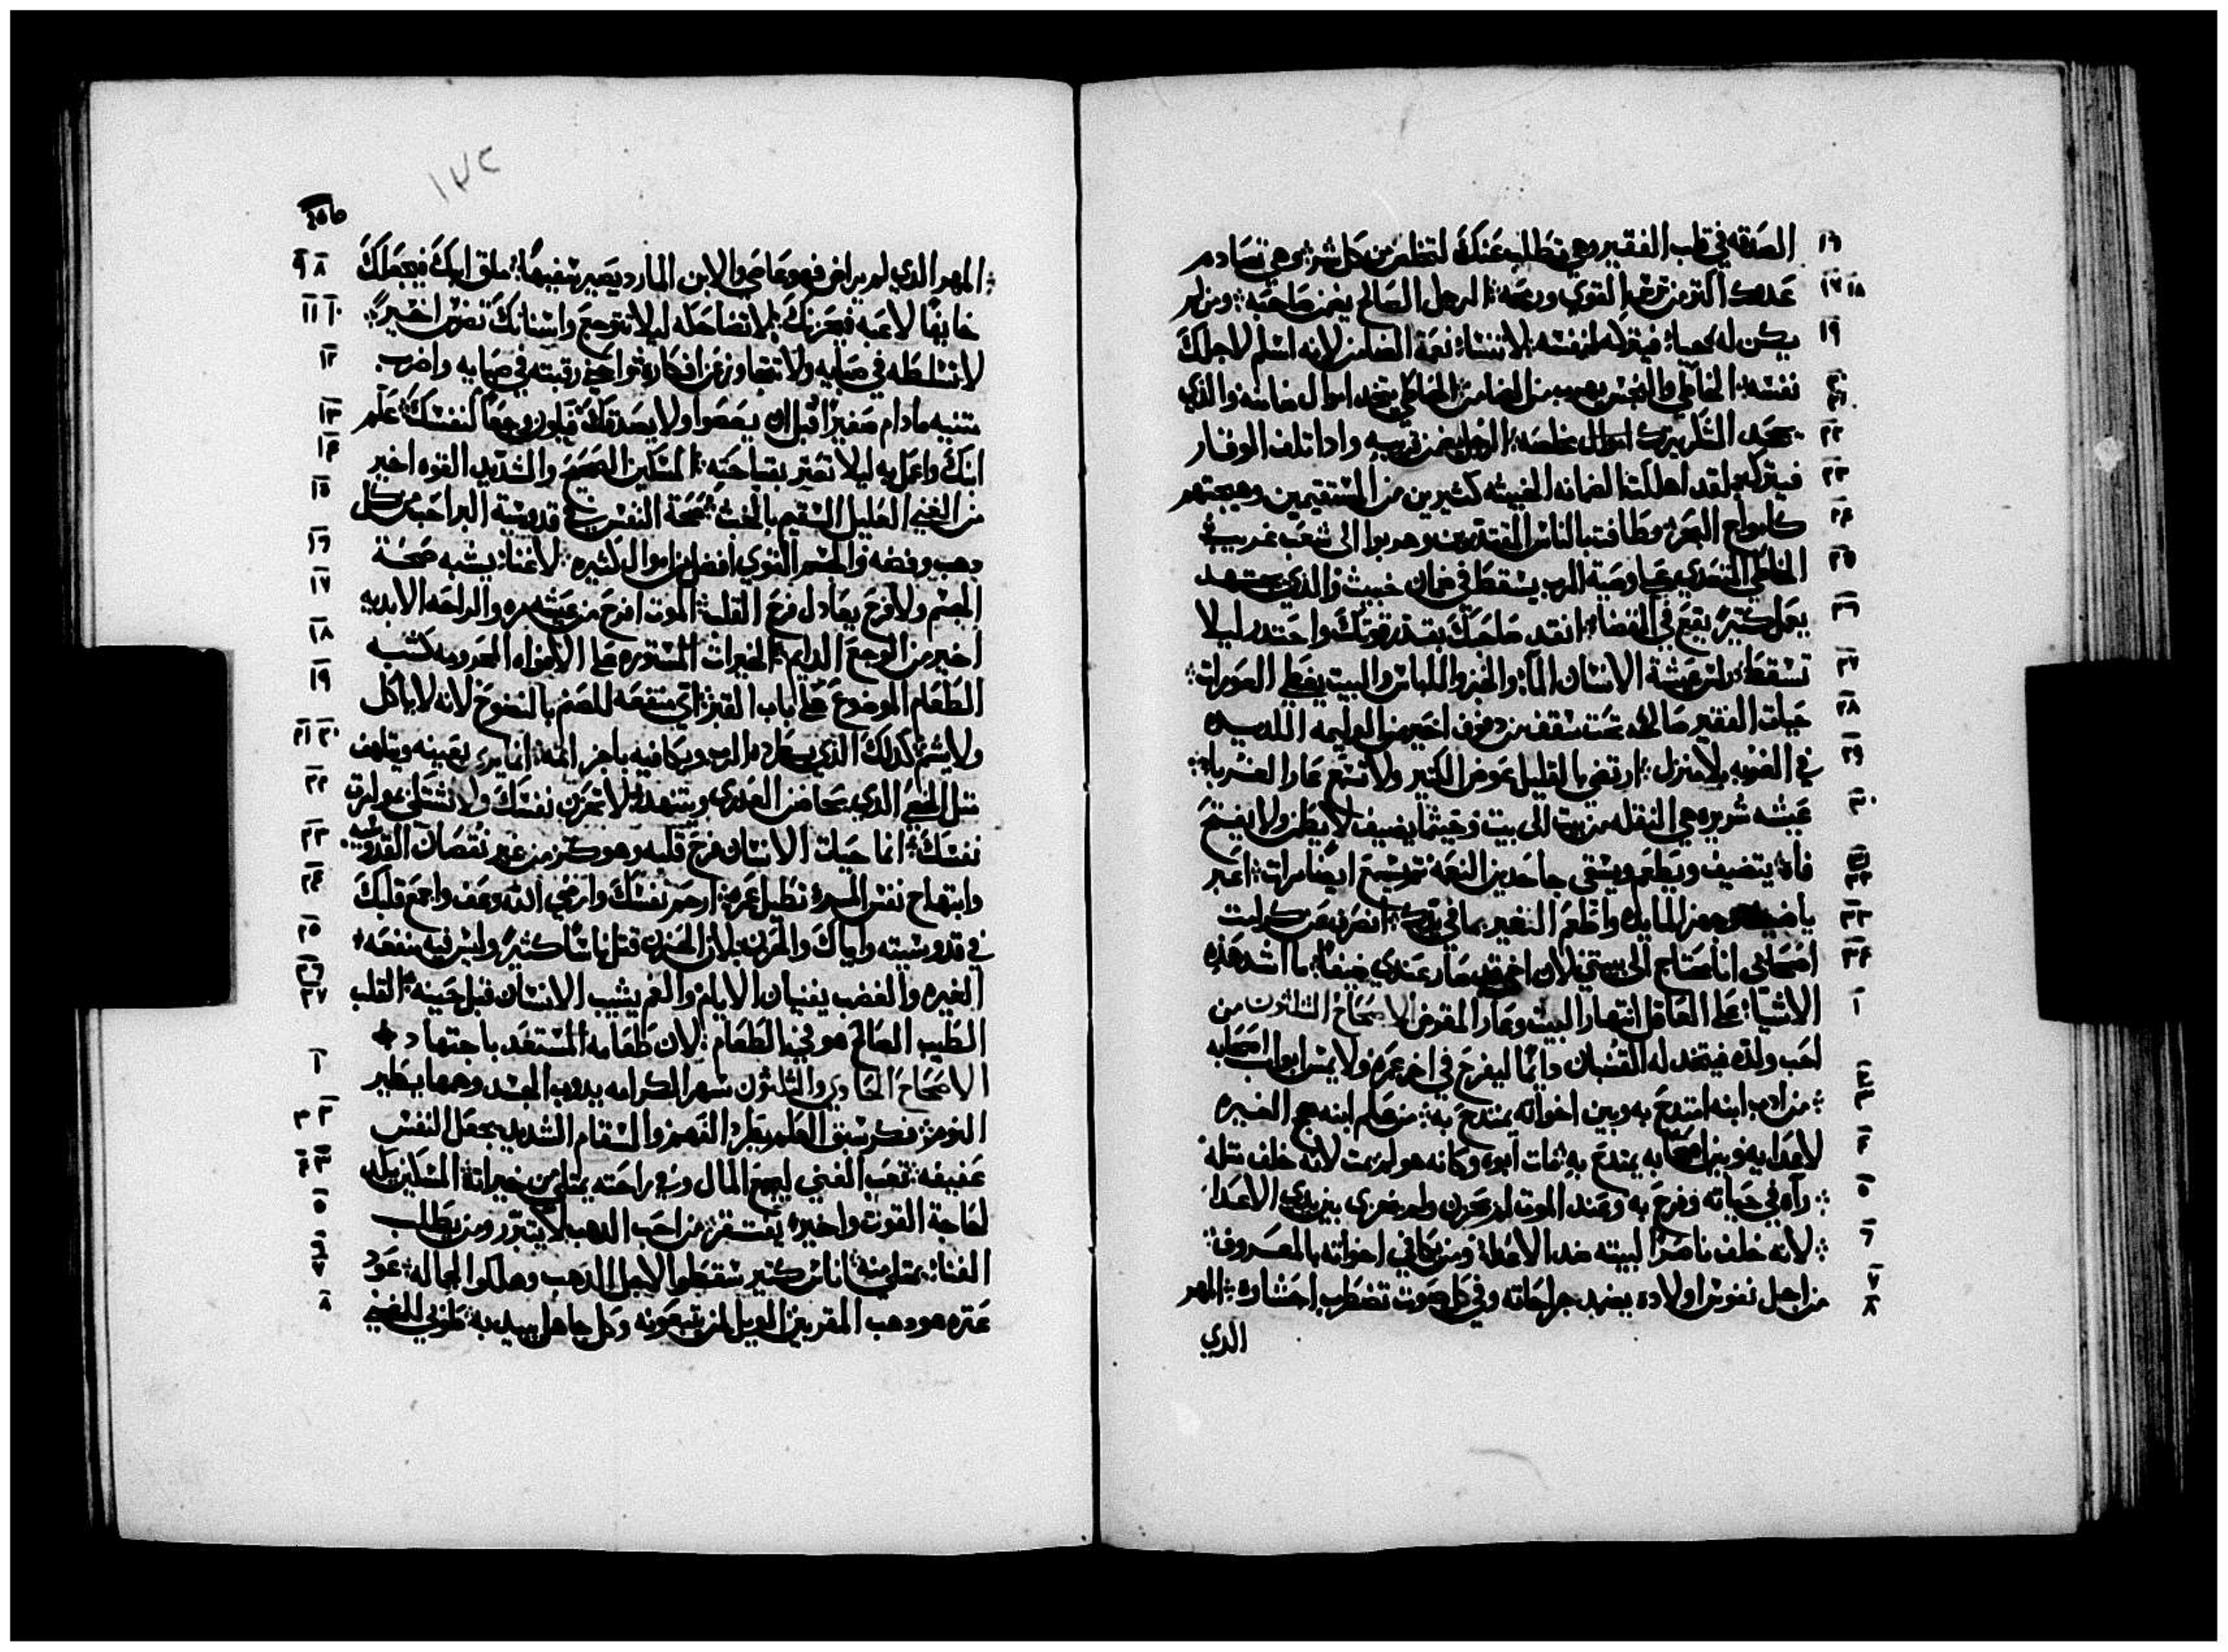 الصدقه في قلب الفقير وهي تطلب عنك لتخلص من كل شر هي تصادم
عدوك اكتر من ترس القوي ورمحه الرجل الصالح يضمن صاحبه ومن لم
يكن له حيا فيتركه لنفسه لا تنسا نعمة الضامن لانه اسلم لاجلك
نفسه الخاطي والنجس يهرب من الضامن الخاطي يتخد اموال ضامنه والذي
يجحد الشكر يترك مخلصه الرجل يضمن قريبه وادا تلف الوقار
فيتركه لقد اهلكت الضمانه الخبيثه كثيرين من المستقيمين وهيجتهم
كامواج البحر وطافت بالناس المقتدرين وهربوا الى شعب غريب
الخاطي المتعدي علي وصية الرب يسقط في ضمان خبيث والذي يجتهد
يعمل كتير يقع في القضا انقد صاحبك بقدر قوتك واحتدر ليلا
تسقط راس عيشة الانسان الما والخبز واللباس والبيت يغطي العورات
حيات الفقير صالحه تحت سقف من دفوف اخير من الوليمه اللديده
في الغربه بلا منزل ارتضي بالقليل عوض الكتير ولا تسمع عار الغربا
عيشه شريره هي النقله من بيت الى بيت وحيثما يضيف لا يطمن ولا يفتح
فاه يتضيف ويطعم ويسقي جاحدين النعمه تم يسمع ايضا مرات اعبر
يا ضيف وجهز المايده واطعم الغير بما في يدك انصرف عن كرامت
اصحابي انا محتاج الى بيتي لان اخي قد صار عندي ضيفا ما اشد هذه
الاشيا علي العاقل انتهار البيت وعار المقرض الاصحاح الثلثون من
احب ولده فيتخد له القضبان دايما ليفرح في اخر عمره ولا يمس ابواب اصحابه
من ادب ابنه امتدح به وبين اخواته يمتدح به من علم ابنه هيج الغيره
لاعدايه وبين اصحابه يمتدح به مات ابوه وكانه هو لم يمت لانه خلف مثله
راه في حياته وفرح به وعند الموت لم يحزن ولم يخزى بين يدي الاعدا
لانه خلف ناصرا لبيته ضد الاعدا ومن يكافي اخواته بالمعروف
من اجل نفوس اولاده يضمد جراحاته وفي كل صوت تضطرب احشاوه المهر
الدي
المهر الدي لم يراض فهو عاصي والابن المارد يصير سفيها ملق ابنك فيجعلك
خايفا لاعبه فيحزنك لا تضاحكه ليلا تتوجع واسنانك تضرس اخيرا
لا تسلطه في صبايه ولا تتغاور عن افكاره تواحني رقبته في صبايه واضرب
متنيه مادام صغيرا قبل ان يعصوا ولا يصدقك فيكون وجعا لنفسك علم
ابنك واعمل به ليلا تعتر بقباحته المسكين الصحيح والشديد القوه اخير
من الغني العليل السقيم بالخبث صحة النفس في قدوسية البر احب من كل
دهب وفضه والجسم القوي افضل من اموال كثيره لا غنا يشبه صحة
الجسم ولا فرح يعادل فرح القلب الموت افرح من عيشه مره والراحه الابديه
اخير من الوجع الدايم الخيرات المستوره علي الافواه المحرومه كتشبه
الطعام الموضوع علي باب القبر اي منفعه للصنم بالنضوح لانه لا ياكل
ولا يشم كدلك الذي يطرده الرب ويكافيه باجر اتمه انما يرى بعينه ويتلهف
متل الخصي الدي يحاضن العدرى ويتنهد لا تحزن نفسك ولا تشتكي عوارق
نفسك انما حيات الانسان فرح قلبه وهو كنز من غير نقصان القدوسيه
وابتهاج نفس المرء تطيل عمره ارحم نفسك وارضي الله وعف واجمع قلبك
في قدوسيته واياك والحزن لان الحزن قتل ناسا كثيره وليس فيه منفعه
الغيره والغضب يفنيان الايام والغم يشيب الانسان قبل حينه القلب
الطيب الصالح هو في الطعام لان طعامه المستعد باجتهاد
الاصحاح الحادي والثلثون سهر الكرامه يدوب الجسد وهمها يطير
النوم فكر سبق العلم يطرد الفهم والسقام الشديد يجعل النفس
عفيفه تعب الغني ليجمع المال وفي راحته يمتلي من خيراته المسكين يكد
لحاجة القوت واخيره يفتقر من احب الدهب لا يتبرر ومن يطلب
الفنا يمتلي منه اناس كتير سقطوا لاجل الدهب وهلكوا لجماله عود
عتره هو دهب المقربين الويل لمن يتبعونه وكل جاهل يبيد به طوبي للغني